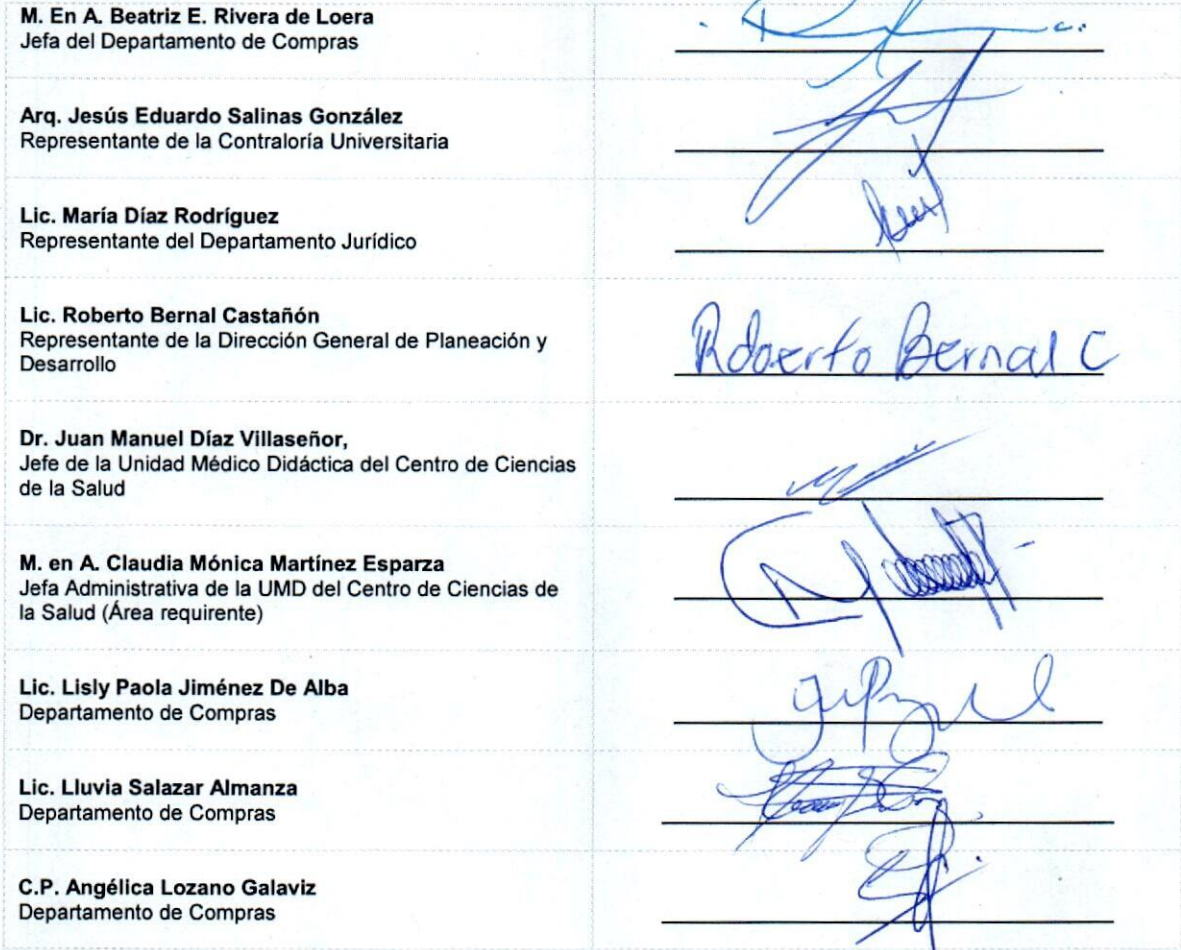 M. En A. Beatriz E. Rivera de Loera
Jefa del Departamento de Compras
Arq. Jesús Eduardo Salinas González
Representante de la Contraloría Universitaria
Lic. María Díaz Rodríguez
Representante del Departamento Jurídico
Lic. Roberto Bernal Castañón
Representante de la Dirección General de Planeación y
Desarrollo
Roberto Bernal C
Dr. Juan Manuel Díaz Villaseñor,
Jefe de la Unidad Médico Didáctica del Centro de Ciencias
de la Salud
M. en A. Claudia Mónica Martínez Esparza
Jefa Administrativa de la UMD del Centro de Ciencias de
la Salud (Área requirente)
Lic. Lisly Paola Jiménez De Alba
Departamento de Compras
Lic. Lluvia Salazar Almanza
Departamento de Compras
C.P. Angélica Lozano Galaviz
Departamento de Compras